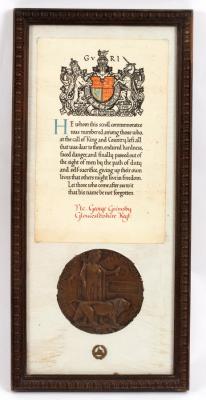 G V R I
HE whom this scroll commemorates
was numbered among those who,
at the call of King and Country, left all
that was dear to them, endured hardness,
faced danger, and finally passed out of
the sight of men by the path of duty
and self-sacrifice, giving up their own
lives that others might live in freedom.
Let those who come after see to it
that his name be not forgotten.
Pte. George Grimsby
Gloucestershire Regt.